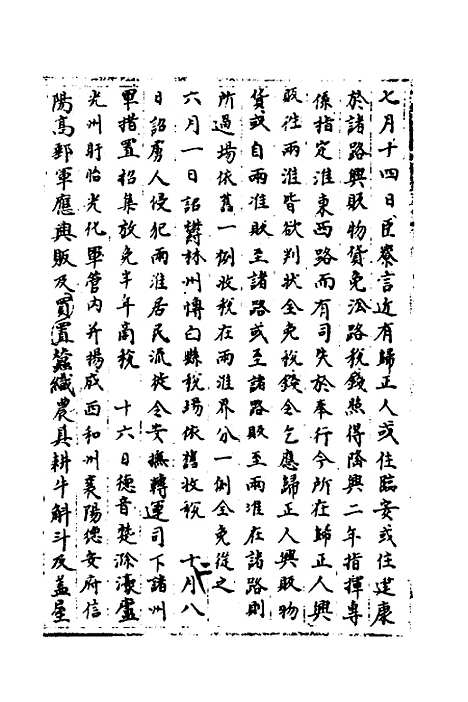 七月十四日臣寮言近有歸正人或住臨安或住建康
於諸路興販物貨免㳂路稅錢照得隆興二年指揮專
係指定淮東西路而有司失於奉行今所在歸正人興
販往兩淮皆欲判狀全免稅錢今乞應歸正人興販物
貨或自兩淮販至諸路或至諸路販至兩淮在諸路則
所過場依舊一例收稅在兩淮界分一例全免從之
六月一日詔欝林州愽白縣稅場依舊收稅 十月八
日詔虜人侵犯兩淮居民流徙令安撫轉運司下諸州
軍措置招集放免半年商稅 十六日德音楚滁濠廬
光州盱眙光化軍管內并揚成西和州襄陽德安府信
陽高郵軍應興販及買置蠶織農具耕牛斛斗及盖屋